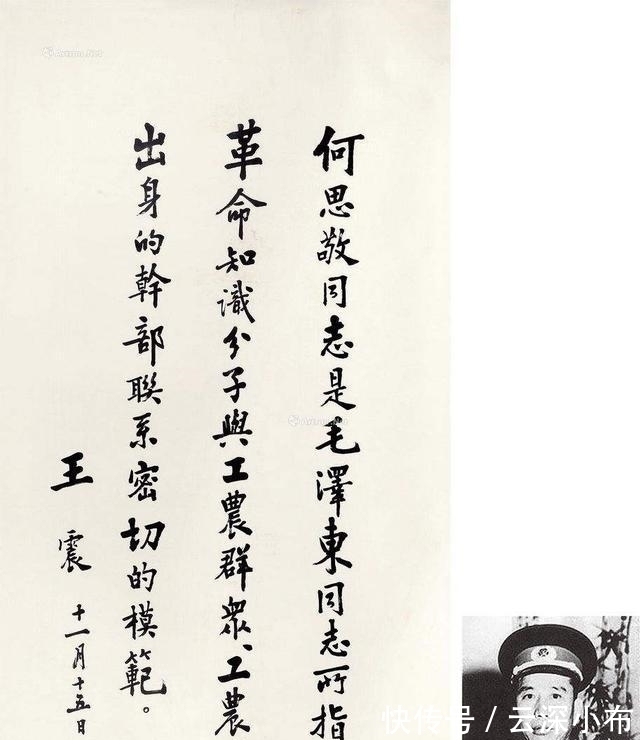 何思敬同志是毛澤東同志所指
革命知識分子與工農群眾、工農
出身的幹部聯系密切的模範。
王震
十一月十五日
Artron.Net
快传号/云深小布